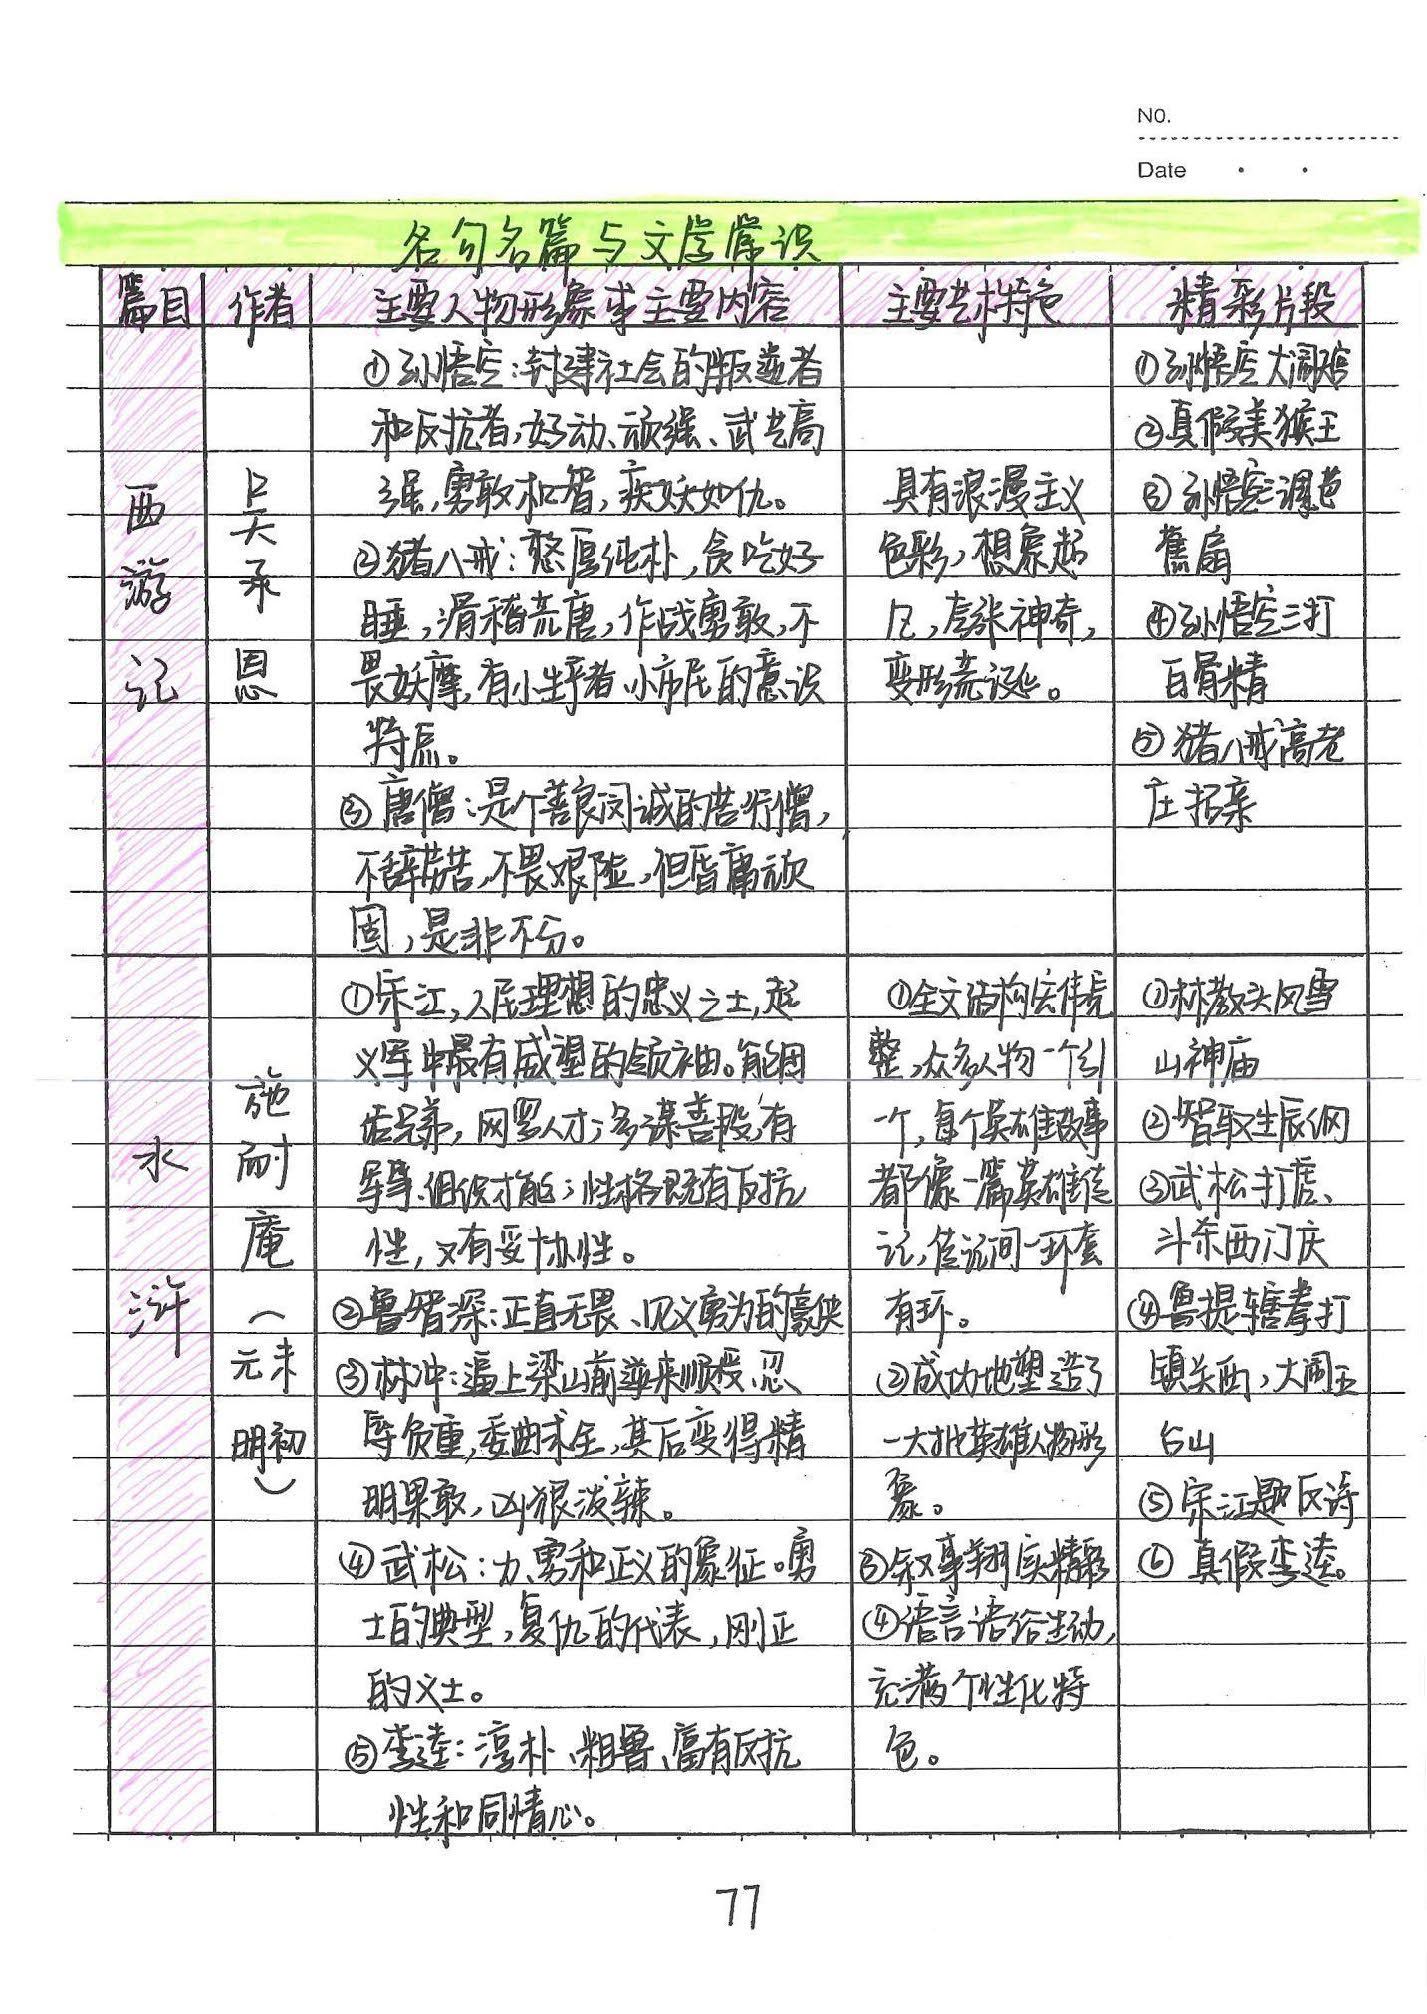 NO.
Date
名句名篇与文学常识
篇目 作者 主要人物形象或主要内容 主要艺术特色 精彩片段
西游记
吴承恩
①孙悟空:封建社会的叛逆者
和反抗者,好动、顽强、武艺高
强,勇敢机智,疾妖如仇。
②猪八戒:憨厚纯朴,贪吃好
睡,滑稽荒唐,作战勇敢,不
畏妖摩,有小生产者、小市民的意识
特点。
③唐僧:是个善良闵诚的苦行僧,
不辞劳苦,不畏艰险,但昏庸顽
固,是非不分。
具有浪漫主义
色彩,想象超
凡,夸张神奇,
变形荒诞。
①孙悟空大闹天宫
②真假美猴王
③孙悟空三调芭
蕉扇
④孙悟空三打
白骨精
⑤猪八戒高老
庄招亲
水浒
施耐庵
(元末
明初)
①宋江,人民理想的忠义之士,起
义军中最有威望的领袖。能团
结兄弟,网罗人才;多谋善断,有
军事、组织才能;性格既有反抗
性,又有妥协性。
②鲁智深:正直无畏、见义勇为的豪侠
③林冲:逼上梁山前逆来顺受,忍
辱负重,委曲求全,其后变得精
明果敢,凶狠泼辣。
④武松:力、勇和正义的象征。勇
士的典型,复仇的代表,刚正
的义士。
⑤李逵:淳朴、粗鲁、富有反抗
性和同情心。
①全文结构宏伟完
整,众多人物一个引
一个,每个英雄故事
都像一篇英雄传
记,传记间一环套
有环。
②成功地塑造了
一大批英雄人物形
象。
③叙事翔实精彩
④语言语俗生动,
充满个性化特
色。
①林教头风雪
山神庙
②智取生辰纲
③武松打虎、
斗东西门庆
④鲁提辖拳打
镇关西,大闹五
台山
⑤宋江题反诗
⑥真假李逵。
77